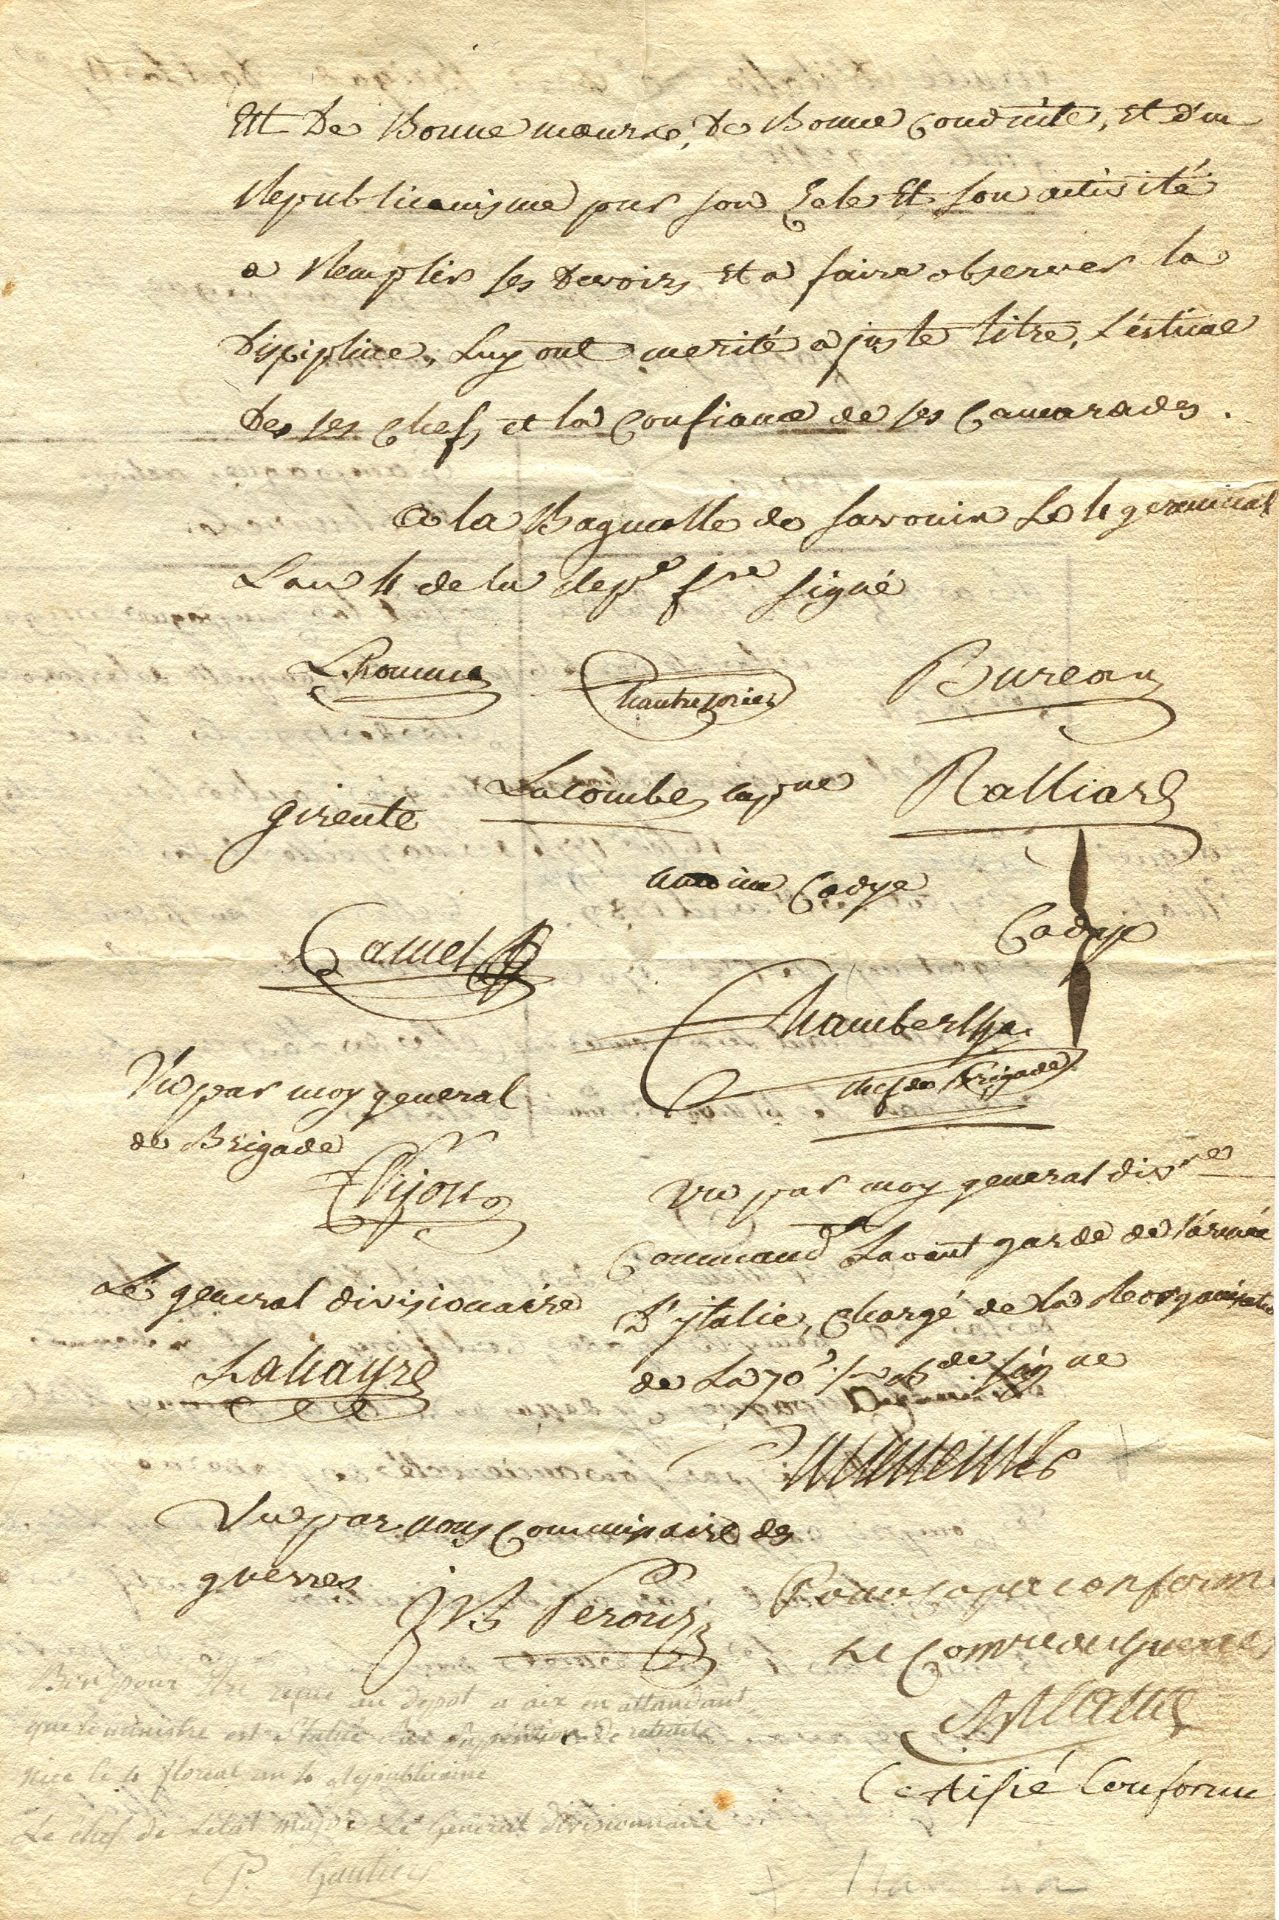 Est De Bonne mœurse, De Bonne Conduitte, Et d'un
Republicanisme par son Zele Et son activité
a Remplir ses Devoirs, Et a faire observer la
Discipline, Luy ont merité a juste titre, L'estime
Des ses Chefs, et la Confiance de ses Camarades.
a la Baguette de Savonne Le 4 germinal
Lan 4 de la Repe. fse. signé
L'homme Bureau
girente Lacombe capne Ralliard
antoine Cadye
Camel Cadye
chef de Brigade
Vu par moy general
de Brigade
Pijon
Vu par moy general disre
Command Lavant garde de l'armée
D'ytalie, Chargé de la Reorganisation
de La 70e.
Le general divisionaire
Laharpe
Vu par nous Commissaire des
guerres
JB Perouz
Pour copie conforme
Le Comre des Guerres
Certifié Conforme
Bon pour être reçu au depot a aix en attendant
que le ministre est statué sur sa pension de retraite
Nice le 4 floreal an 4 republicaine
Le chef de Letat major Le General divisionnaire
P. Gautier